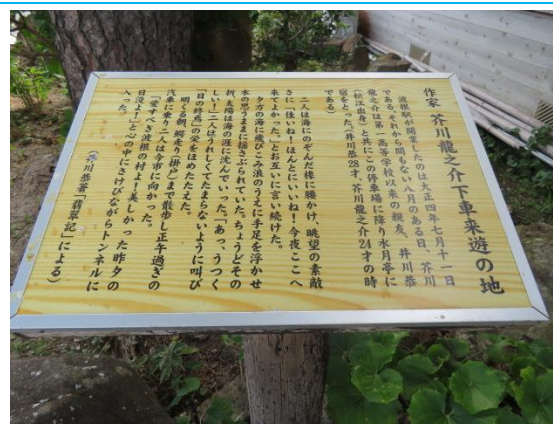 作家 芥川龍之介下車来遊の地
波根駅が開業したのは大正四年七月十一日
であるそれから間もない八月のある日、芥川
龍之介は第一高等学校以来の親友、井川恭
(松江出身)と共にこの停車場に降り水月亭に
宿をとった(井川恭28才、芥川龍之介24才の時
である)
二人は海にのぞんだ椽に腰かけ、眺望の素敵
さに「佳いね!ほんとにいいね!今夜ここへ
来てよかった。」とお互いに言い続けた。
夕方の海に飛びこみ浪のうえに手足を浮かせ
水の思うままに揺さぶられていた。ちょうどその
折、太陽は海の涯に沈んでいった。「あっ、うつく
しい!」二人はうれしくてたまらないように叫び
「日の終焉」の栄をほめたたえた。
明くる朝、鰐走り(掛戸)まで散歩し正午過ぎの
汽車に乗り二人は今市に向かった。
「愛すべき波根の村よ!美しかった昨夕の
日没よ!」と心の中にさけびながらトンネルに
入った。
(井川恭著「翡翠記」による)